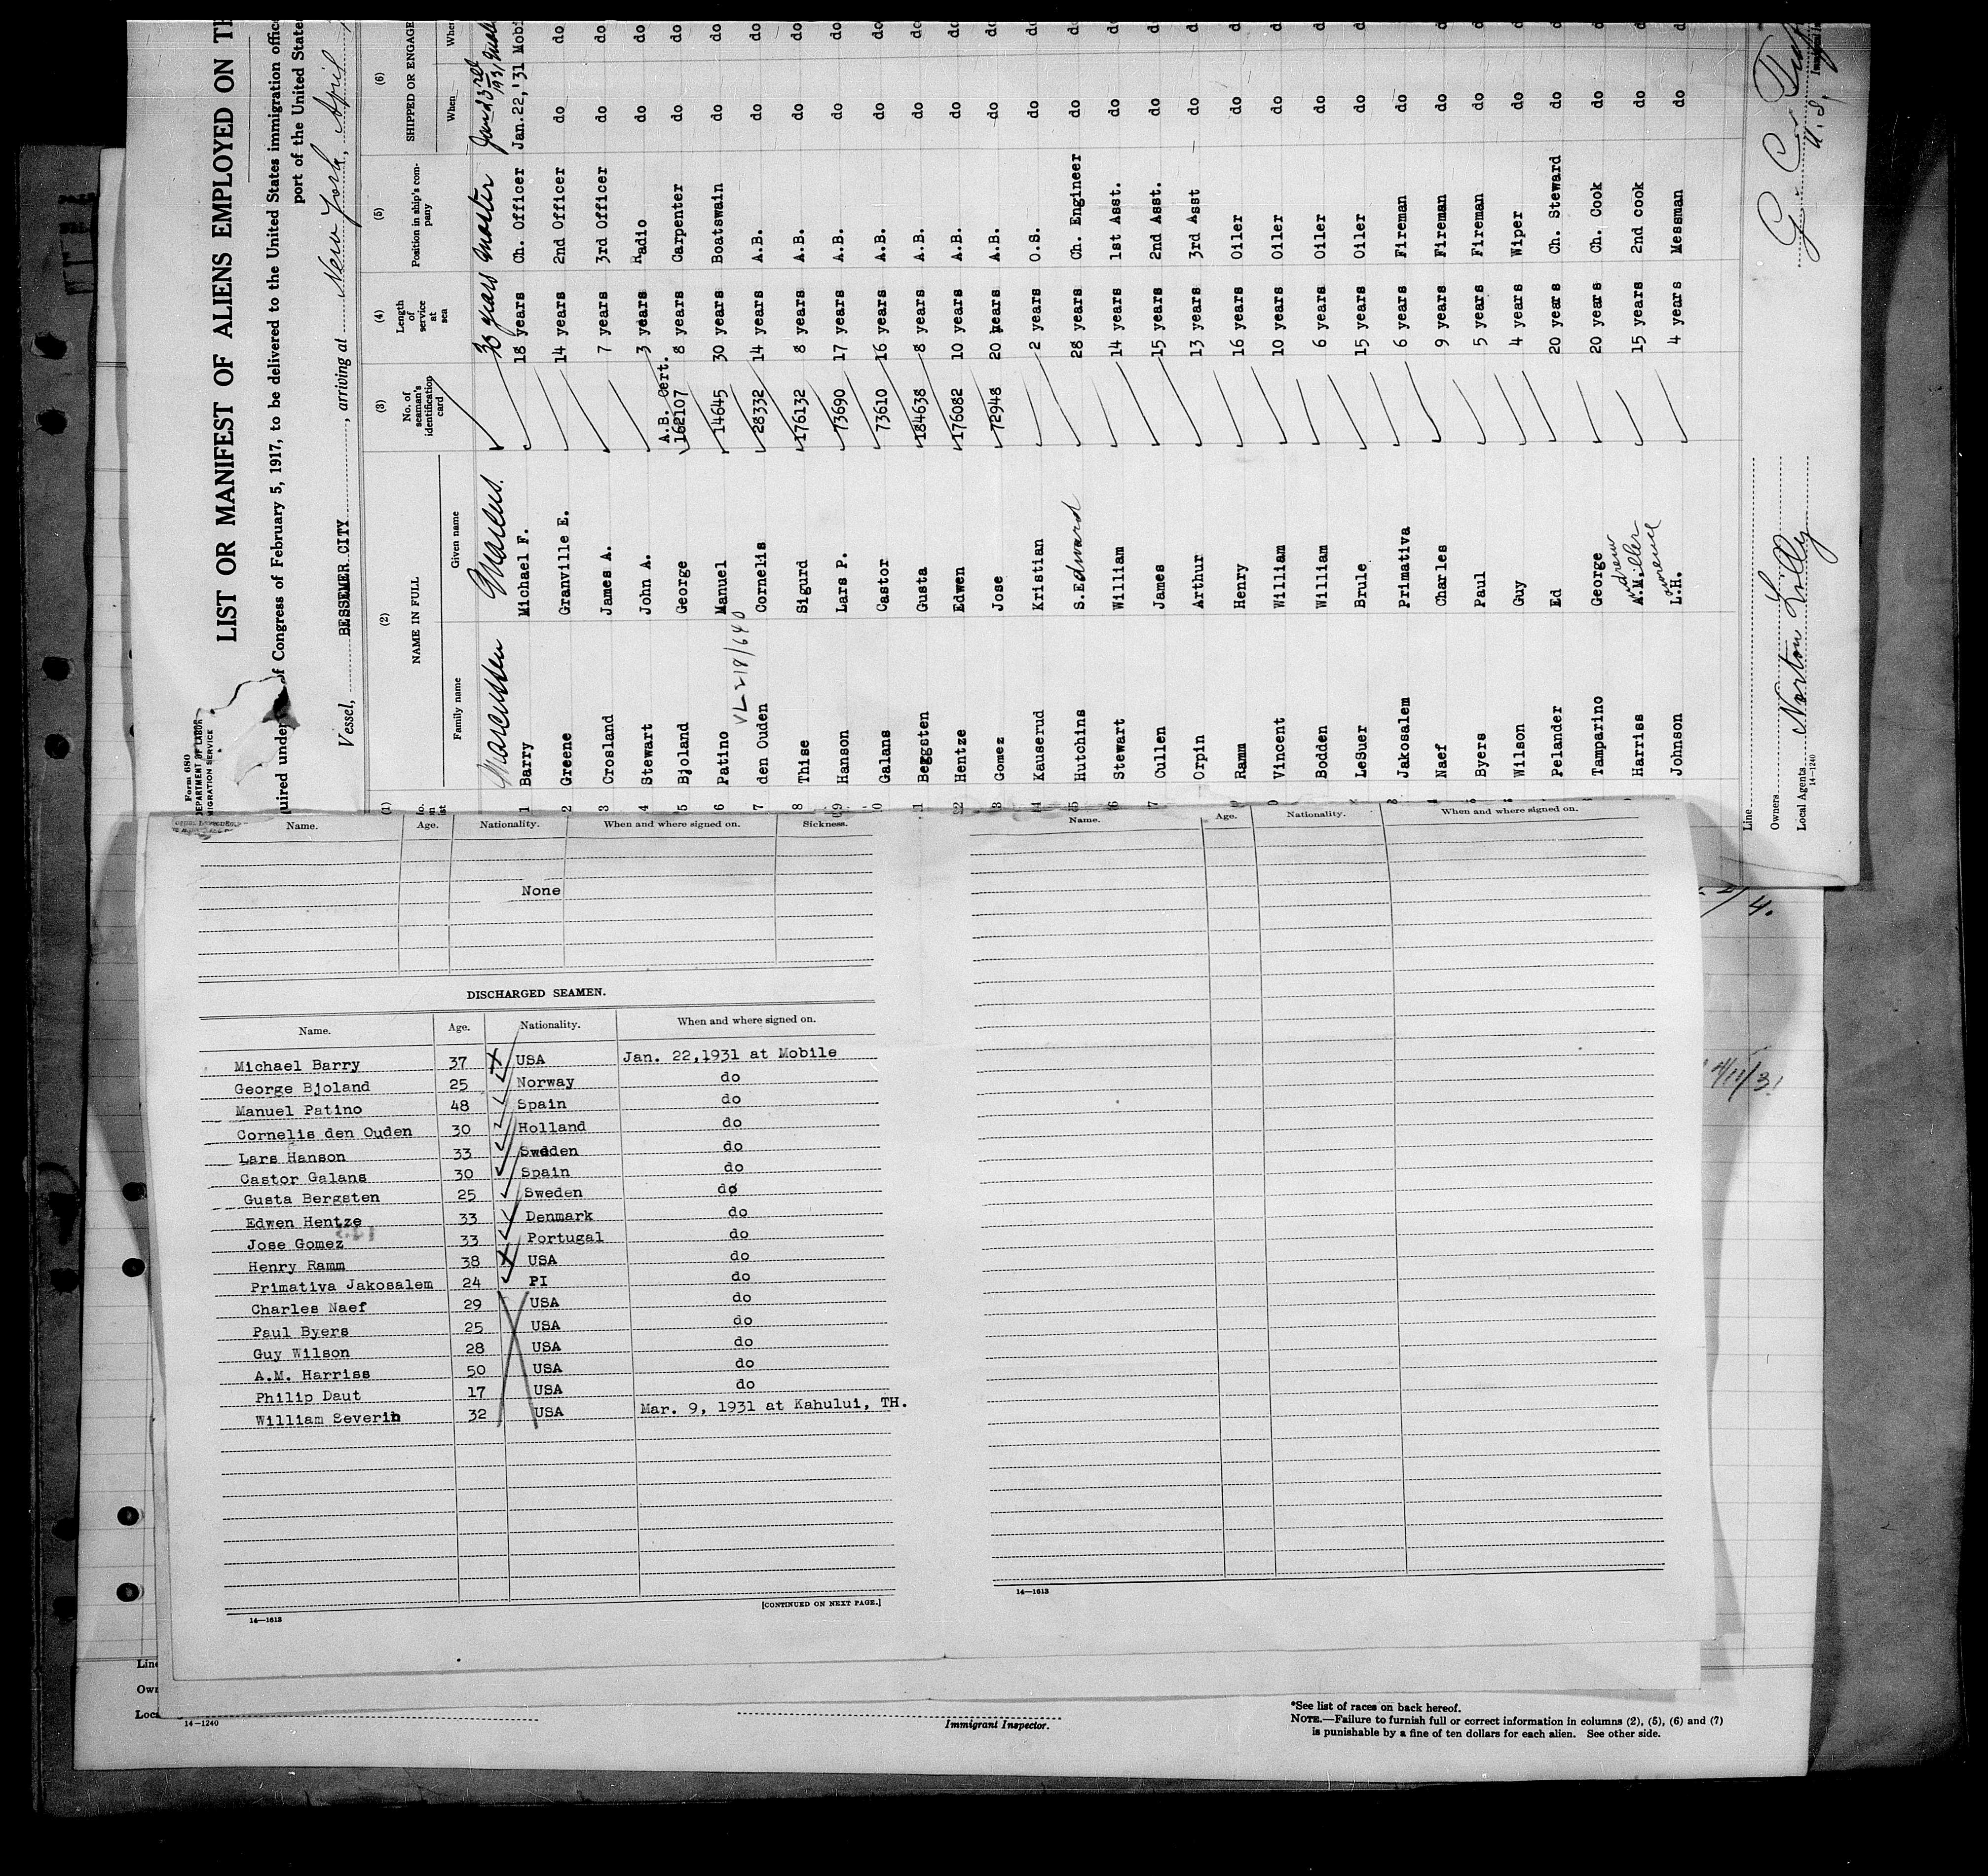 Form 680
DEPARTMENT OF LABOR
MIGRATION SERVICE
LIST OR MANIFEST OF ALIENS EMPLOYED ON TH
uired under of Congress of February 5, 1917, to be delivered to the United States immigration offic
port of the United State
Vessel, BESSEMER CITY, arriving at New York, April
(1) (2) (3) (4) (5) (6)
NAME IN FULL
Family name Given name
No. of seaman's identification card
Length of service at sea
Position in ship's company
SHIPPED OR ENGAGE
When Whe
Marcussen Marcus. 33 years Master
1 Barry Michael F. 18 years Ch. Officer Jan.22,'31 Mobi
2 Greene Granville E. 14 years 2nd Officer do do
3 Crosland James A. 7 years 3rd Officer do do
4 Stewart John A. 3 years Radio do do
5 Bjoland George A.B. Cert. 162107 8 years Carpenter do do
6 Patino Manuel 14645 30 years Boatswain do do
VL-218/640
7 den Ouden Cornelis 28332 14 years A.B. do do
8 Thise Sigurd 176132 8 years A.B. do do
9 Hanson Lars P. 73690 17 years A.B. do do
10 Galans Castor 73610 16 years A.B. do do
11 Beggsten Gusta 184638 8 years A.B. do do
12 Hentze Edwen 176082 10 years A.B. do do
13 Gomez Jose 72948 20 years A.B. do do
14 Kauserud Kristian 2 years O.S. do do
15 Hutchins S.Edward 28 years Ch. Engineer do do
16 Stewart William 14 years 1st Asst. do do
17 Cullen James 15 years 2nd Asst. do do
Orpin Arthur 13 years 3rd Asst do do
Ramm Henry 16 years Oiler do do
Vincent William 10 years Oiler do do
Bodden William 6 years Oiler do do
LeSuer Brule 15 years Oiler do do
Jakosalem Primativa 6 years Fireman do do
Naef Charles 9 years Fireman do do
Byers Paul 5 years Fireman do do
Wilson Guy 4 years Wiper do do
Pelander Ed 20 years Ch. Steward do do
Tamparino George 20 years Ch. Cook do do
Harriss A.Miller 15 years 2nd cook do do
Johnson L.H. 4 years Messman do do
Line
Owners
Local Agents Norton Lilly
14-1240
Name. Age. Nationality. When and where signed on. Sickness.
None
DISCHARGED SEAMEN.
Name. Age. Nationality. When and where signed on.
Michael Barry 37 USA Jan. 22,1931 at Mobile
George Bjoland 25 Norway do
Manuel Patino 48 Spain do
Cornelis den Ouden 30 Holland do
Lars Hanson 33 Sweden do
Castor Galans 30 Spain do
Gusta Bergsten 25 Sweden do
Edwen Hentze 33 Denmark do
Jose Gomez 33 Portugal do
Henry Ramm 38 USA do
Primativa Jakosalem 24 PI do
Charles Naef 29 USA do
Paul Byers 25 USA do
Guy Wilson 28 USA do
A.M. Harriss 50 USA do
Philip Daut 17 USA do
William Severin 32 USA Mar. 9, 1931 at Kahului, TH.
[CONTINUED ON NEXT PAGE.]
14—1613
Name. Age. Nationality. When and where signed on.
14—1613
4/11/31
Line
Own
Loca
14-1240
Immigrant Inspector.
*See list of races on back hereof.
NOTE.—Failure to furnish full or correct information in columns (2), (5), (6) and (7)
is punishable by a fine of ten dollars for each alien. See other side.